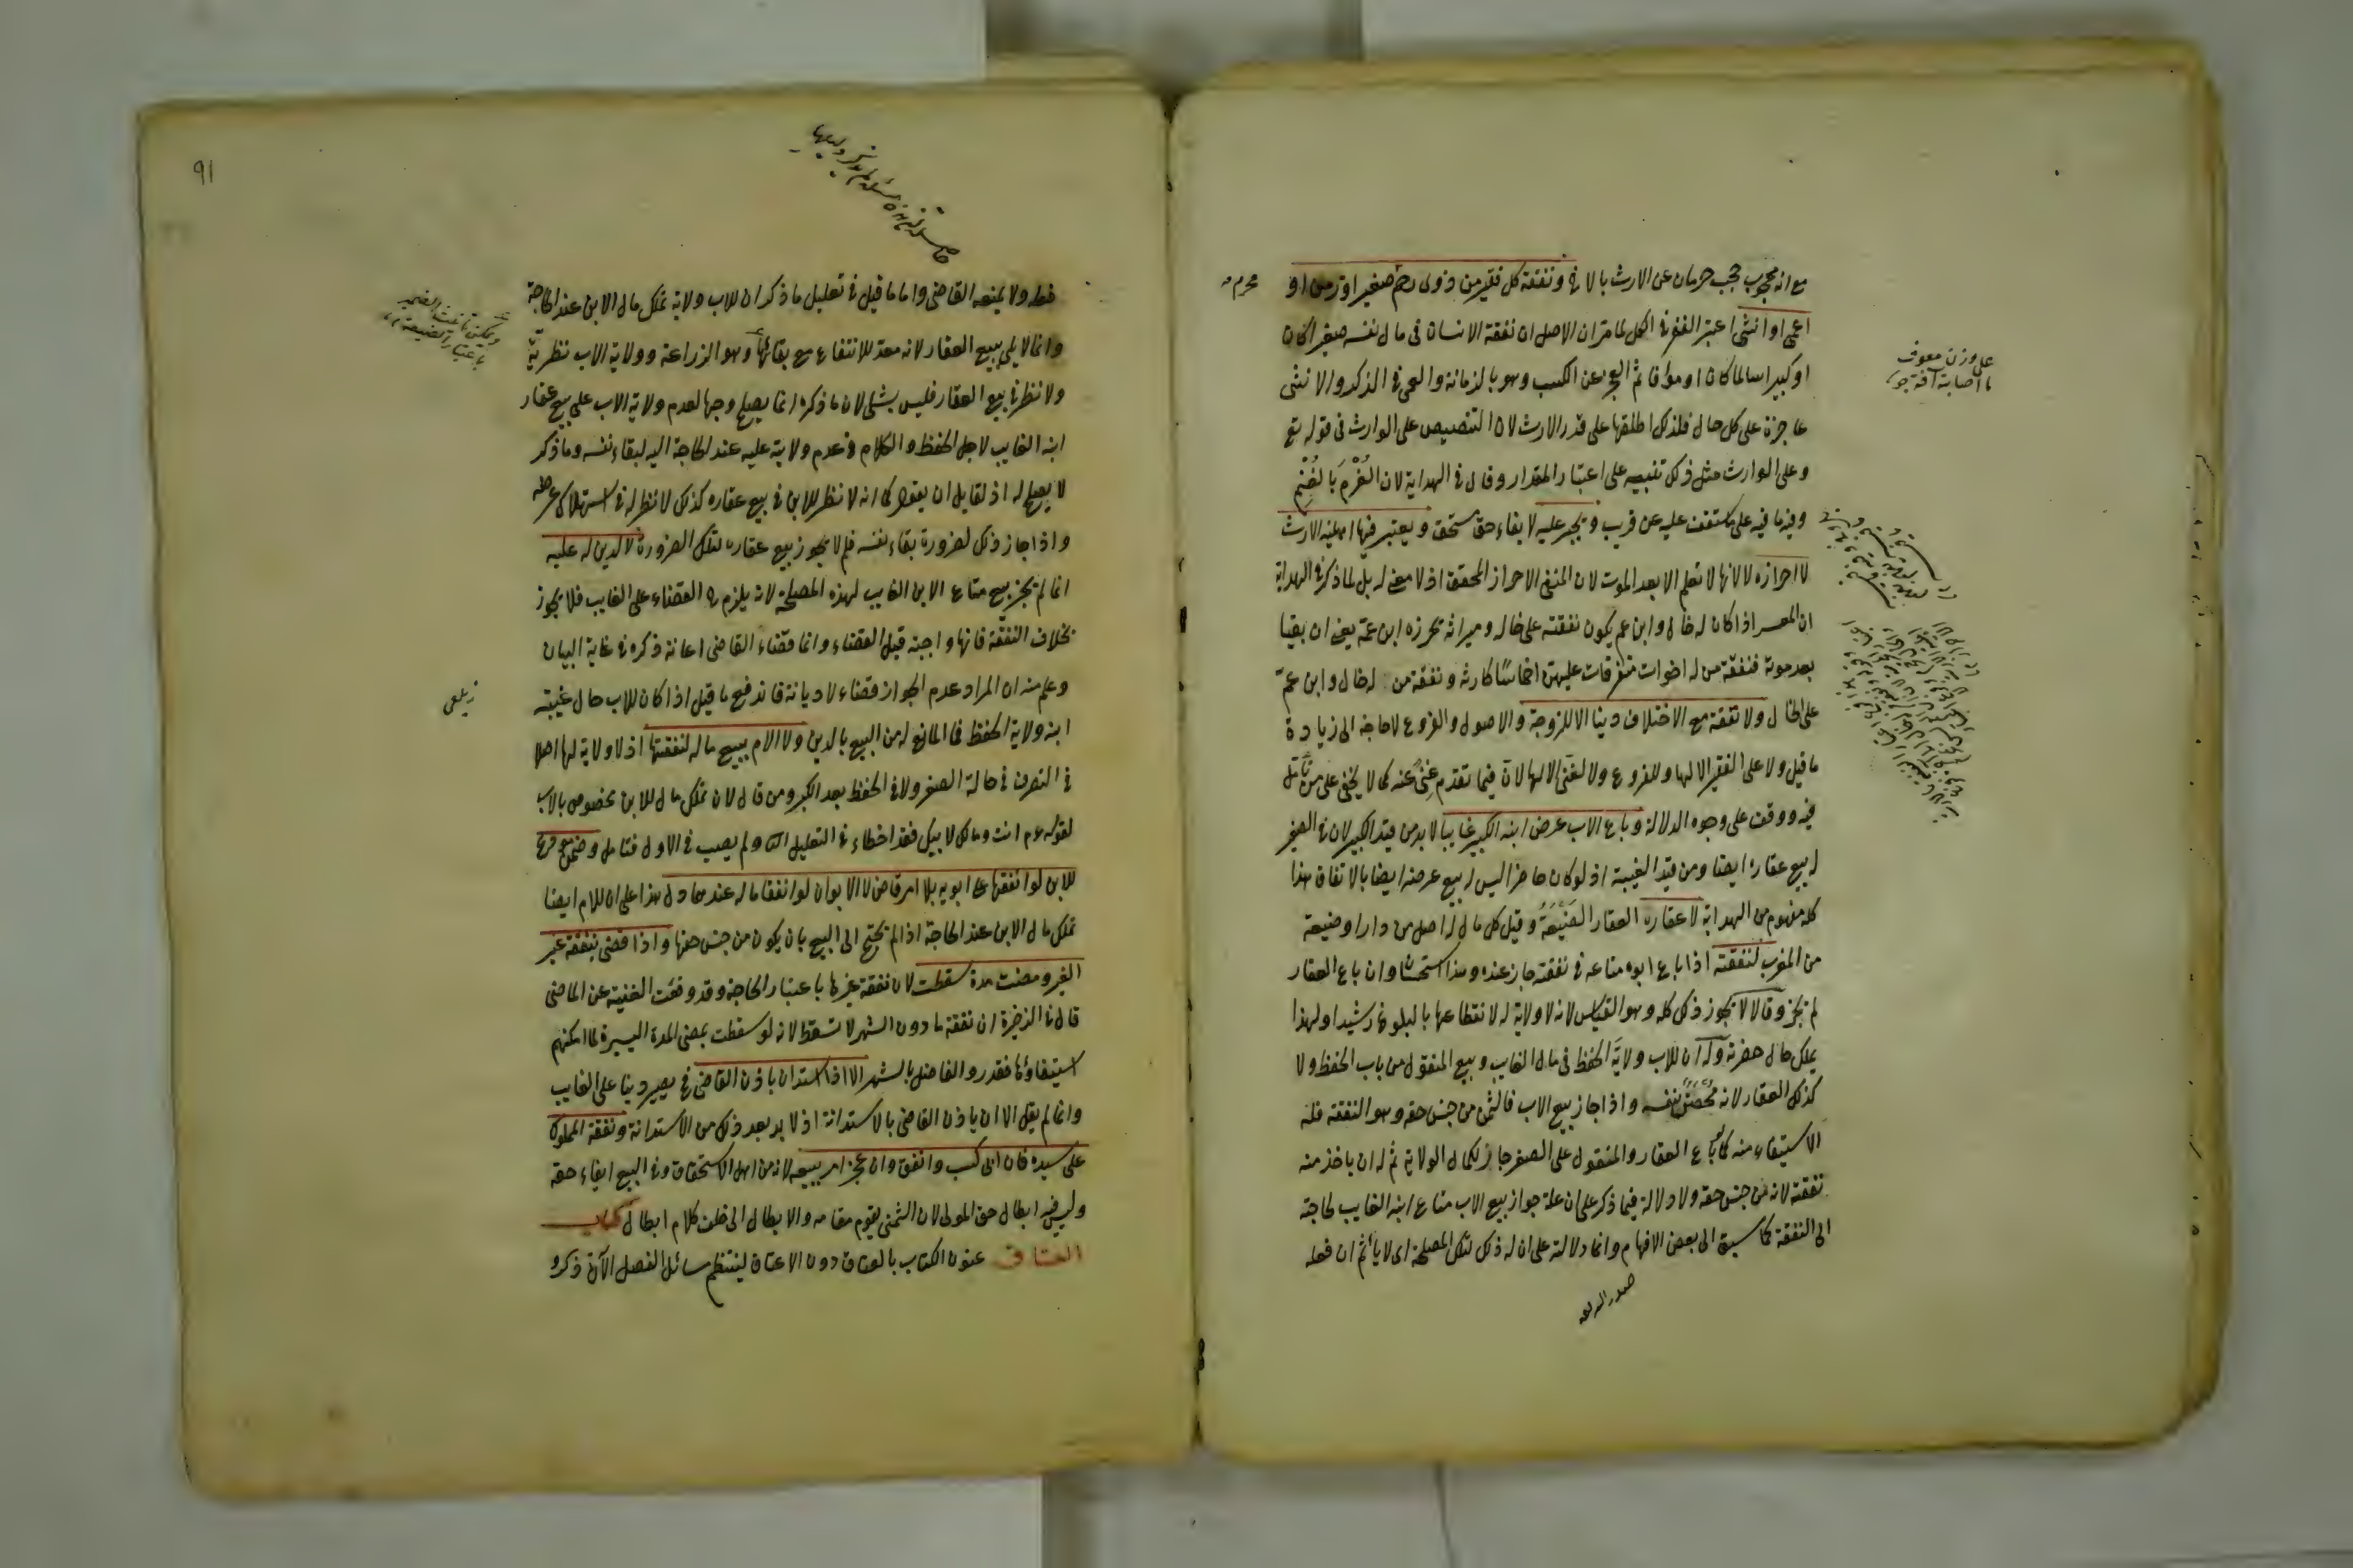 مع انه محجوب حجب حرمان عن الارث بالاخ ونفقة كل فقير من ذوى رحم صغير او زمن او
محرم
اعمى او انثى اعتبر الفقر فى الكل لما مر ان الاصل ان نفقة الانسان فى مال نفسه صغيرا كان
او كبيرا سالما كان او مؤفا ثم العجز عن الكسب وهو بالزمانة والعمى فى الذكر والانثى
عاجزة على كل حال فلذلك اطلقها على قدر الارث لان التنصيص على الوارث فى قوله تع
وعلى الوارث مثل ذلك تنبيه على اعتبار المقدار وقال فى الهداية لان الغُرْمَ بالغُنْمِ
وفيه ما فيه على ما ستقف عليه عن قريب ويجبر عليه لايفاء حق مستحق ويعتبر فيها اهلية الارث
لا احرازه لانها لا تعلم الا بعد الموت لان المنفى الاحراز المحقق اذ لا معنى له بل لما ذكر فى الهداية
ان المعسر اذا كان له خال وابن عم يكون نفقته على خاله وميراثه يحرزه ابن عمه يعنى ان بقيا
بعد موته فنفقة من له اخوات متفرقات عليهن اخماسًا كارثه ونفقة من له خال وابن عمّ
على الخال ولا نفقة مع الاختلاف دينا الا للزوجة والاصول والفروع لا حاجة الى زيادة
ما قيل ولا على الفقير الا لها وللفروع ولا لغنى الا لها لان فيما تقدم غِنًى عنه كما لا يخفى على من تأمّل
فيه ووقف على وجوه الدلالة وباع الاب عرض ابنه الكبير غايبا لا بد من قيد الكبير لان فى الصغير
له بيع عقاره ايضا ومن قيد الغيبة اذ لو كان حاضرا ليس له بيع عرضه ايضا بالاتفاق هذا
كله مفهوم من الهداية لا عقاره العقار الضَيْعَةُ وقيل كل مال له اصل من دار او ضيعة
من المغرب لنفقته اذا باع ابوه متاعه فى نفقته جاز عنده وهذا استحسان وان باع العقار
لم يجز وقالا لا يجوز ذلك كله وهو القياس لانه لا ولاية له لانقطاعها بالبلوغ رشيدا ولهذا
يملك حال حضرته وله ان للاب ولاية الحفظ فى مال الغايب وبيع المنقول من باب الحفظ ولا
كذلك العقار لانه مُحَصَّنٌ بنفسه واذا جاز بيع الاب فالثمن من جنس حقه وهو النفقة فله
الاستيفاء منه كما لو باع العقار والمنقول على الصغير جاز لكمال الولاية ثم له ان ياخذ منه
نفقته لانه من جنس حقه ولا دلالة فيما ذكر على ان علة جواز بيع الاب متاع ابنه الغايب لحاجته
الى النفقة كما سبق الى بعض الافهام وانما دلالته على ان له ذلك لتلك المصلحة اى لا يأثم ان فعله
صدر الشريعة
على وزن معوف
ما اصابته آفة
91
فقط ولا يمنعه القاضى واما ما قيل فى تعليل ما ذكر ان للاب ولاية تملك مال الابن عند الحاجة
وانما لا يلى بيع العقار لانه معدّ للانتفاع مع بقائها وهو الزراعة وولاية الاب نظريّة
ولا نظر فى بيع العقار فليس بشئ لان ما ذكره انما يصلح وجها لعدم ولاية الاب على بيع عقار
ابنه الغايب لاجل الحفظ والكلام فى عدم ولايته عليه عند الحاجة اليه لبقاء نفسه وما ذكر
لا يصلح له اذ لقايل ان يقول كما انه لا نظر للابن فى بيع عقاره كذلك لا نظر له فى استهلاك عرضه
واذا جاز ذلك لضرورة بقاء نفسه فلم لا يجوز بيع عقاره لتلك الضرورة لا لدين له عليه
انما لم يجز بيع متاع الابن الغايب لهذه المصلحة لانه يلزم ح القضاء على الغايب فلا يجوز
بخلاف النفقة فانها واجبة قبل القضاء وانما قضاء القاضى اعانة ذكره فى غاية البيان
وعلم منه ان المراد عدم الجواز قضاء لا ديانة فاندفع ما قيل اذا كان للاب حال غيبته
ابنه ولاية الحفظ فما المانع له من البيع بالدين ولا الام ببيع ماله لنفقتها اذ لا ولاية لها اصلا
فى التصرف فى حالة الصغر ولا فى الحفظ بعد الكبر ومن قال لان تملك مال الابن مخصوص بالاب
لقوله عم انت ومالك لابيك فقد اخطاء فى التعليل الثا ولم يصب فى الاول فتامل وضمن مودع
للابن لو انفقها على ابويه بلا امر قاض لا الابوان لو انفقا ماله عندهما دل هذا على ان للام ايضا
تملك مال الابن عند الحاجة اذا لم يحتج الى البيع بان يكون من جنس حقها واذا قضى بنفقة غير
العرس ومضت مدة سقطت لان نفقة غيرها باعتبار الحاجة وقد وقعت الغنية عن الماضى
قال فى الذخيرة ان نفقة ما دون الشهر لا تسقط لانه لو سقطت بمضى المدة اليسيرة لما امكنهم
استيفاؤها فقدروا الفاصل بالشهر الا اذا استدان باذن القاضى فح يصير دينا على الغايب
وانما لم يقل الا ان ياذن القاضى بالاستدانة اذ لا بد بعد ذلك من الاستدانة ونفقة المملوك
على سيده فان ابى كسب وانفق وان عجز امر ببيعه لانه من اهل الاستحقاق وفى البيع ايفاء حقه
وليس فيه ابطال حق المولى لان الثمن يقوم مقامه والابطال الى خلف كلا ابطال كتاب
العتاق عنون الكتاب بالعتاق دون الاعتاق لينتظم مسائل الفصل الآتى ذكره
ويمكن تانيث الضمير
باعتبار الضيعة
زيلعى